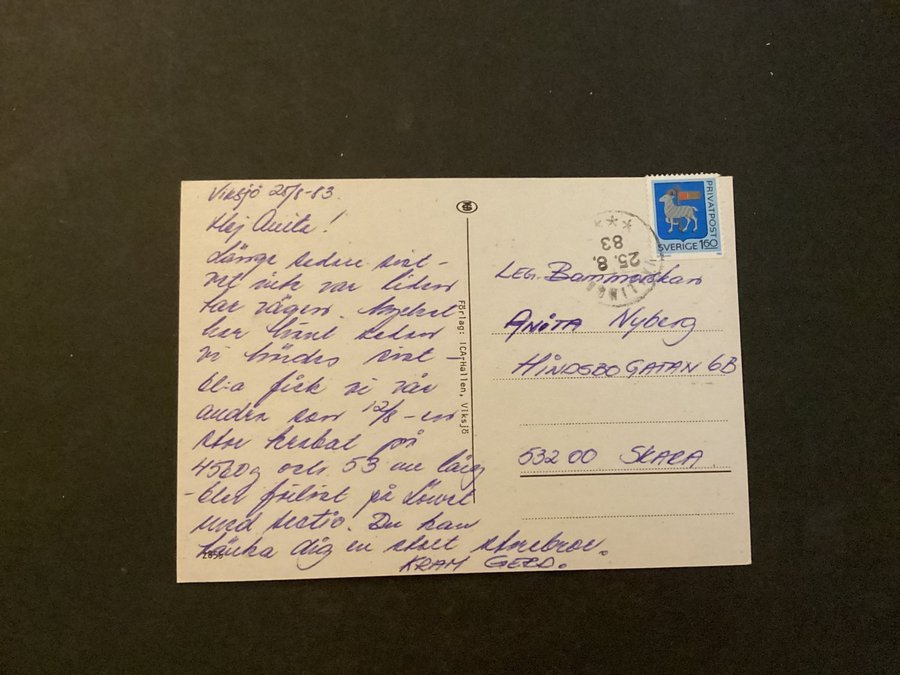 Viksjö 25/8-83.
Hej Anita!
Länge sedan sist -
vet inte var tiden
tar vägen. Mycket
har hänt sedan
vi hördes sist -
bl.a fick vi vår
andra son 12/8 - en
stor krabat på
4560g och 53 cm lång
- blev förlöst på
med sectio. Du kan
tänka dig en stolt storebror.
KRAM GERD.
2855
Förlag: ICA-Hallen, Viksjö
PRIVATPOST
SVERIGE 160
25.8.
83
LEG. Barnmorskan
ANITA Nyberg
HINDSBOGATAN 6B
532 00 SKARA